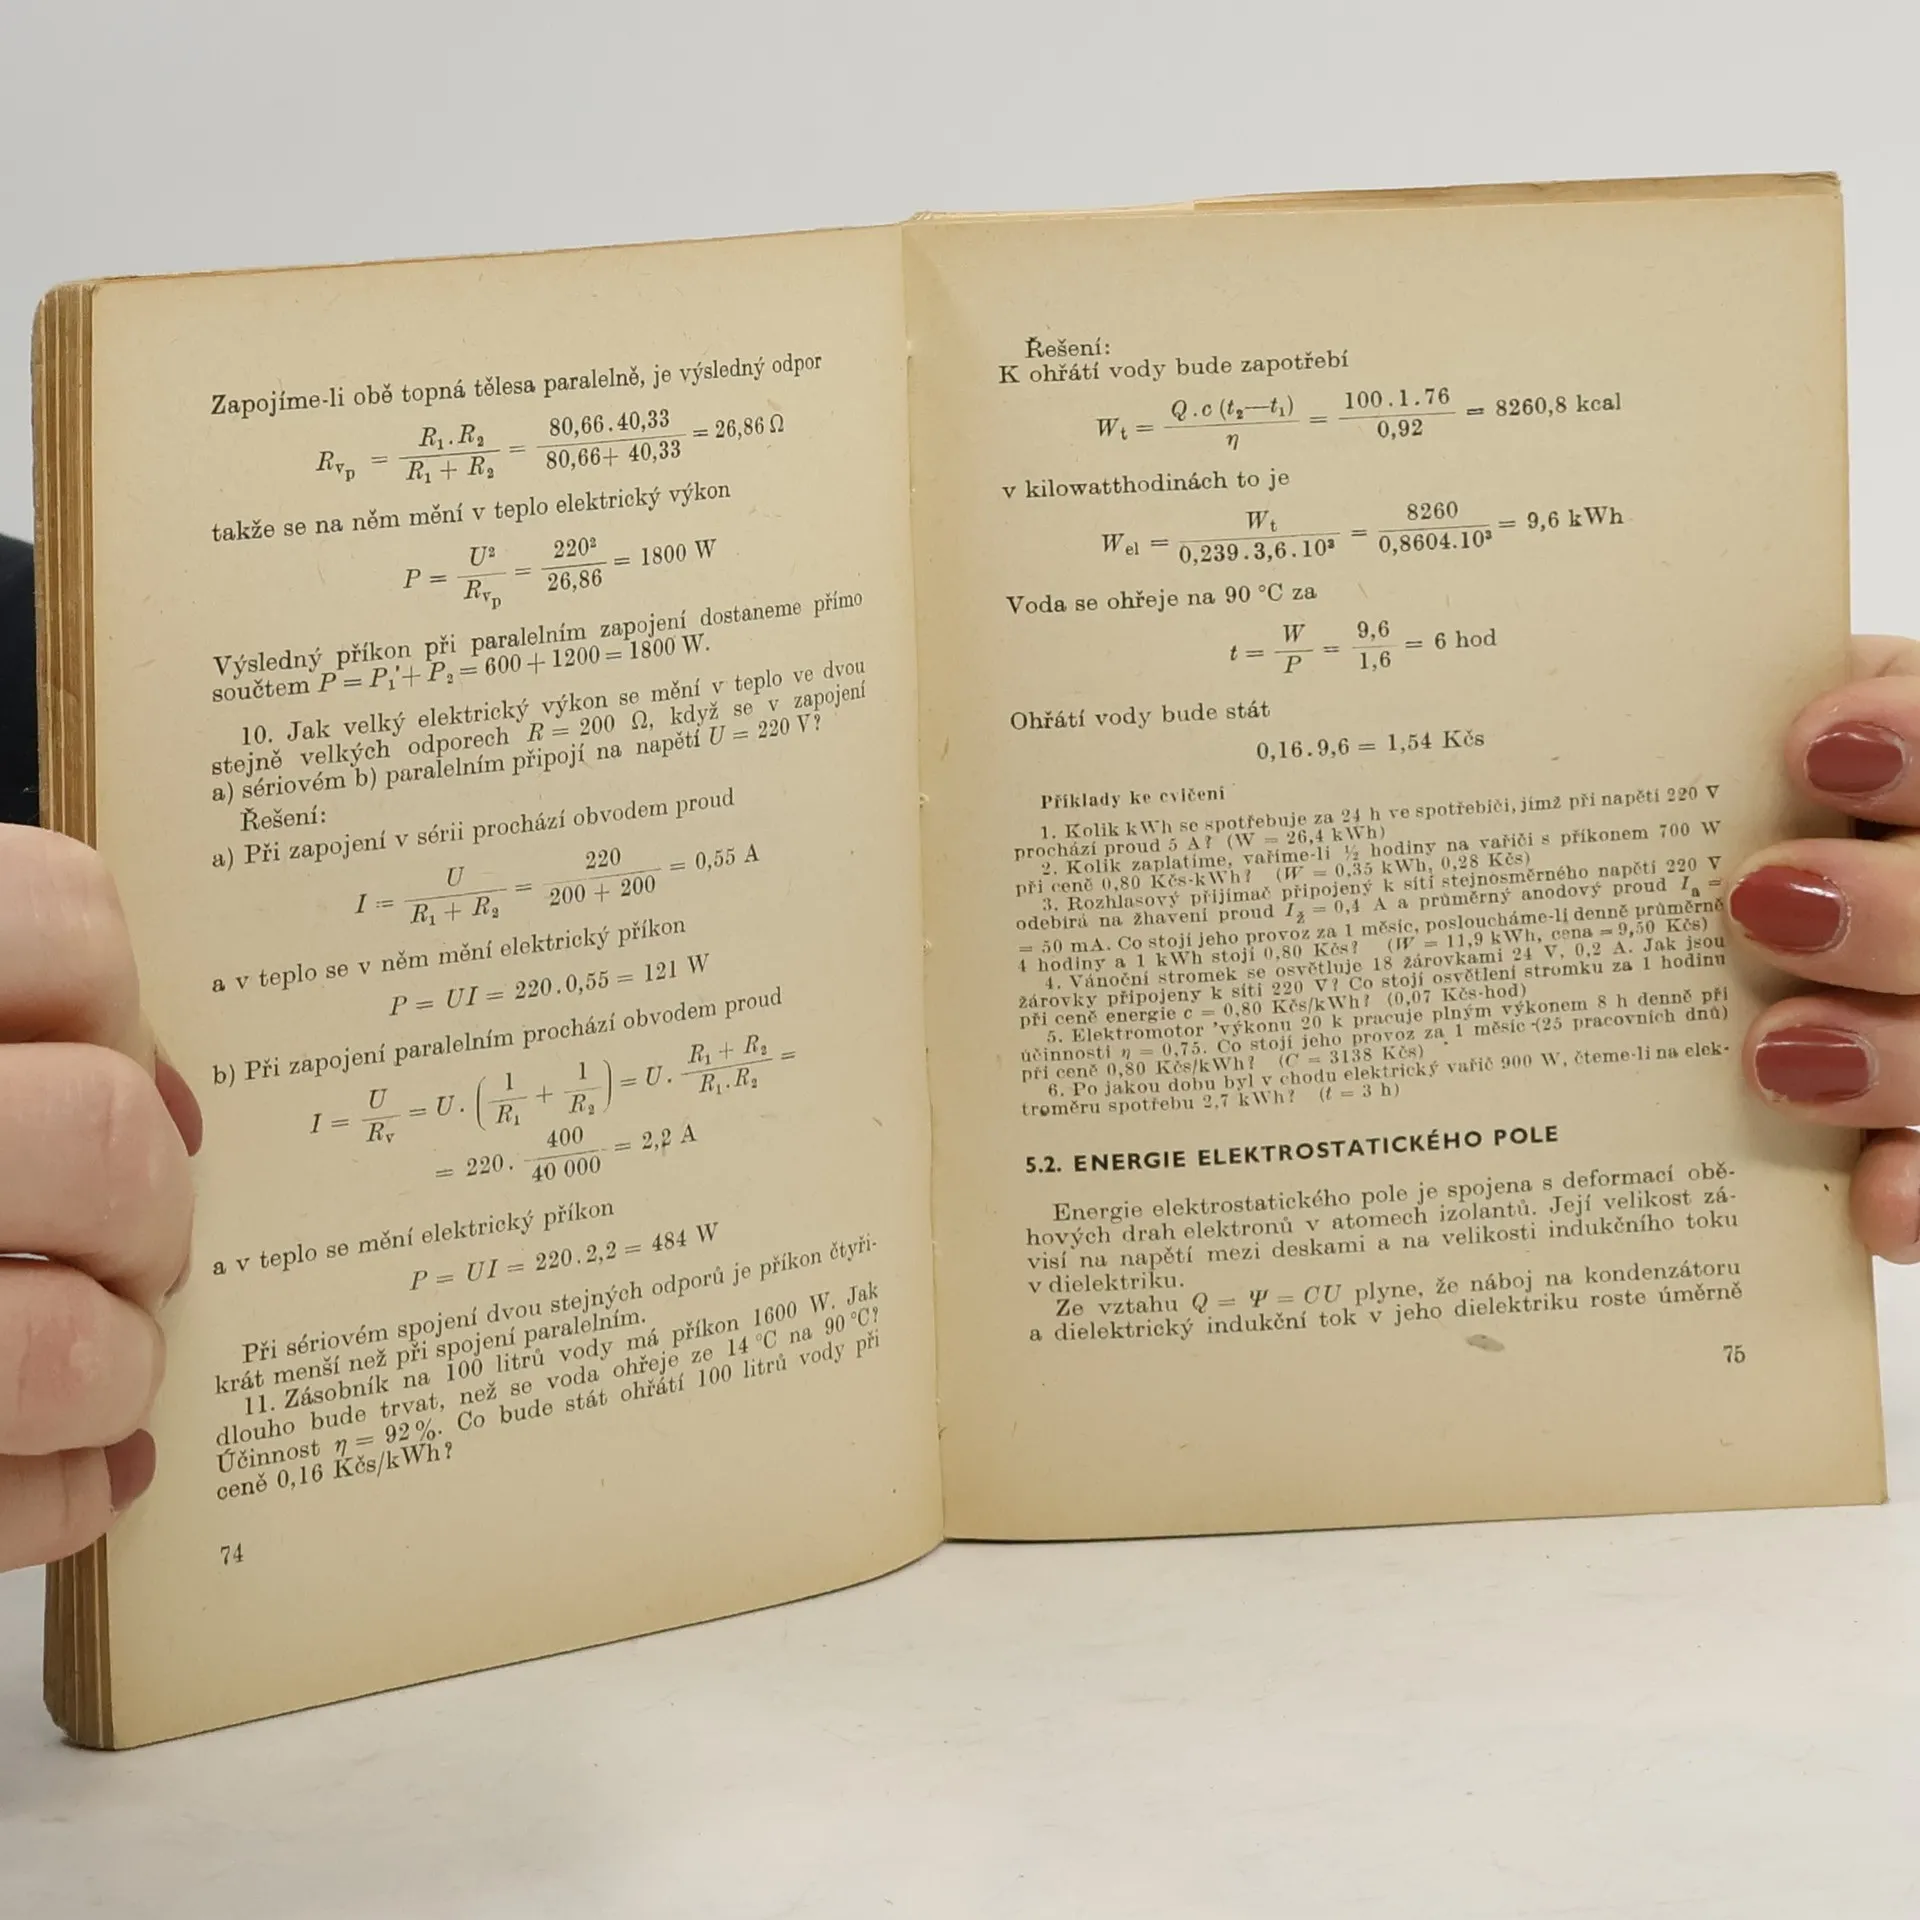 Zapojíme-li obě topná tělesa paralelně, je výsledný odpor
R_{v_p} = \frac{R_1 . R_2}{R_1 + R_2} = \frac{80,66 . 40,33}{80,66 + 40,33} = 26,86 Ω
takže se na něm mění v teplo elektrický výkon
P = \frac{U²}{R_{v_p}} = \frac{220²}{26,86} = 1800 W
Výsledný příkon při paralelním zapojení dostaneme přímo
součtem P = P₁ + P₂ = 600 + 1200 = 1800 W.
10. Jak velký elektrický výkon se mění v teplo ve dvou
stejně velkých odporech R = 200 Ω, když se v zapojení
a) sériovém b) paralelním připojí na napětí U = 220 V?
Řešení:
a) Při zapojení v sérii prochází obvodem proud
I = \frac{U}{R_1 + R_2} = \frac{220}{200 + 200} = 0,55 A
a v teplo se v něm mění elektrický příkon
P = UI = 220 . 0,55 = 121 W
b) Při zapojení paralelním prochází obvodem proud
I = \frac{U}{R_v} = U . (\frac{1}{R_1} + \frac{1}{R_2}) = U . \frac{R_1 + R_2}{R_1 . R_2} =
= 220 . \frac{400}{40 000} = 2,2 A
a v teplo se mění elektrický příkon
P = UI = 220 . 2,2 = 484 W
Při sériovém spojení dvou stejných odporů je příkon čtyři-
krát menší než při spojení paralelním.
11. Zásobník na 100 litrů vody má příkon 1600 W. Jak
dlouho bude trvat, než se voda ohřeje ze 14 °C na 90 °C?
Účinnost η = 92 %. Co bude stát ohřátí 100 litrů vody při
ceně 0,16 Kčs/kWh?
74
Řešení:
K ohřátí vody bude zapotřebí
W_t = \frac{Q . c (t_2—t_1)}{η} = \frac{100 . 1 . 76}{0,92} = 8260,8 kcal
v kilowatthodinách to je
W_{el} = \frac{W_t}{0,239 . 3,6 . 10³} = \frac{8260}{0,8604 . 10³} = 9,6 kWh
Voda se ohřeje na 90 °C za
t = \frac{W}{P} = \frac{9,6}{1,6} = 6 hod
Ohřátí vody bude stát
0,16 . 9,6 = 1,54 Kčs
Příklady ke cvičení
1. Kolik kWh se spotřebuje za 24 h ve spotřebiči, jímž při napětí 220 V
prochází proud 5 A? (W = 26,4 kWh)
2. Kolik zaplatíme, vaříme-li ½ hodiny na vařiči s příkonem 700 W
při ceně 0,80 Kčs-kWh? (W = 0,35 kWh, 0,28 Kčs)
3. Rozhlasový přijímač připojený k síti stejnosměrného napětí 220 V
odebírá na žhavení proud I_ž = 0,4 A a průměrný anodový proud I_a =
= 50 mA. Co stojí jeho provoz za 1 měsíc, posloucháme-li denně průměrně
4 hodiny a 1 kWh stojí 0,80 Kčs? (W = 11,9 kWh, cena = 9,50 Kčs)
4. Vánoční stromek se osvětluje 18 žárovkami 24 V, 0,2 A. Jak jsou
žárovky připojeny k síti 220 V? Co stojí osvětlení stromku za 1 hodinu
při ceně energie c = 0,80 Kčs/kWh? (0,07 Kčs-hod)
5. Elektromotor výkonu 20 k pracuje plným výkonem 8 h denně při
účinnosti η = 0,75. Co stojí jeho provoz za 1 měsíc (25 pracovních dnů)
při ceně 0,80 Kčs/kWh? (C = 3138 Kčs)
6. Po jakou dobu byl v chodu elektrický vařič 900 W, čteme-li na elek-
troměru spotřebu 2,7 kWh? (t = 3 h)
5.2. ENERGIE ELEKTROSTATICKÉHO POLE
Energie elektrostatického pole je spojena s deformací obě-
hových drah elektronů v atomech izolantů. Její velikost zá-
visí na napětí mezi deskami a na velikosti indukčního toku
v dielektriku.
Ze vztahu Q = Ψ = CU plyne, že náboj na kondenzátoru
a dielektrický indukční tok v jeho dielektriku roste úměrně
75